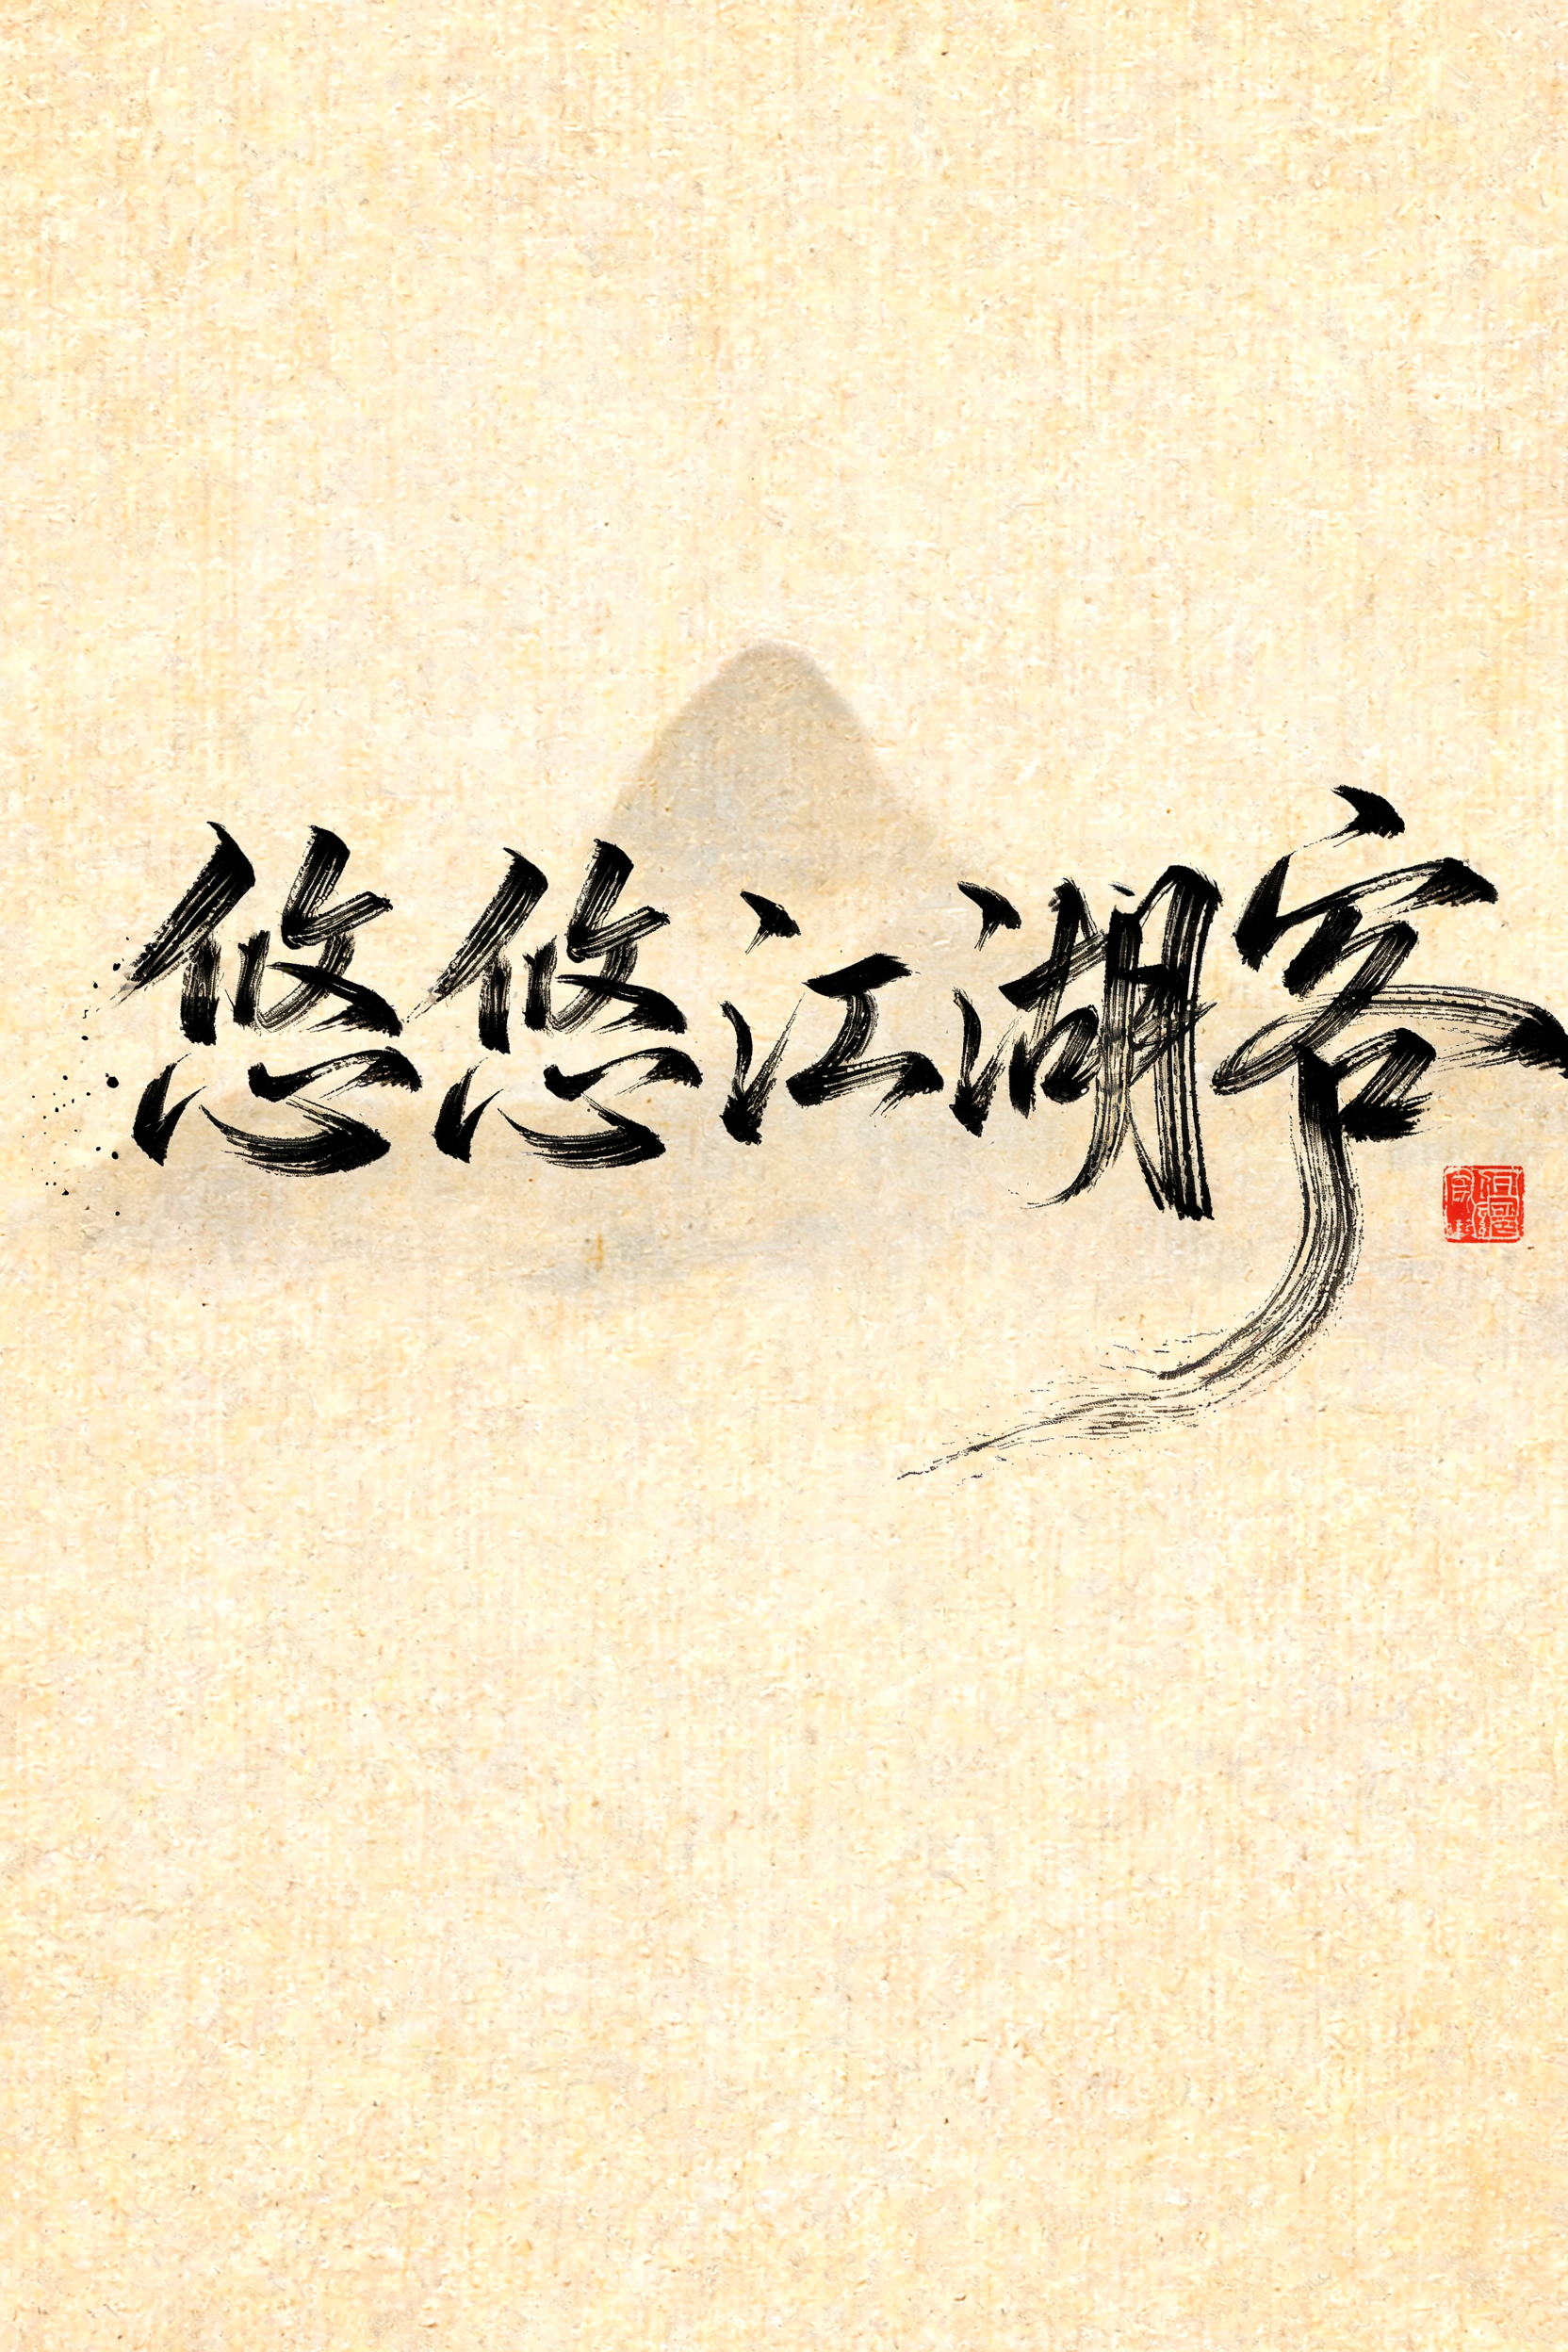 悠悠江湖客